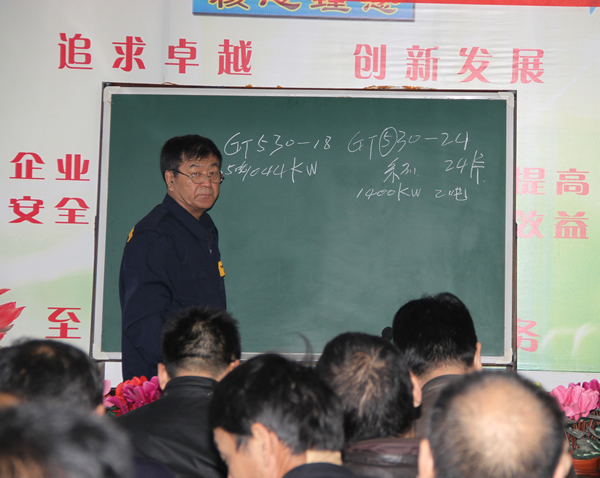 核心理念
追求卓越 创新发展
GT530-18 GT530-24
1044KW 系列 24片
1400KW 2吨
企业
安全
至
提高
效益
务